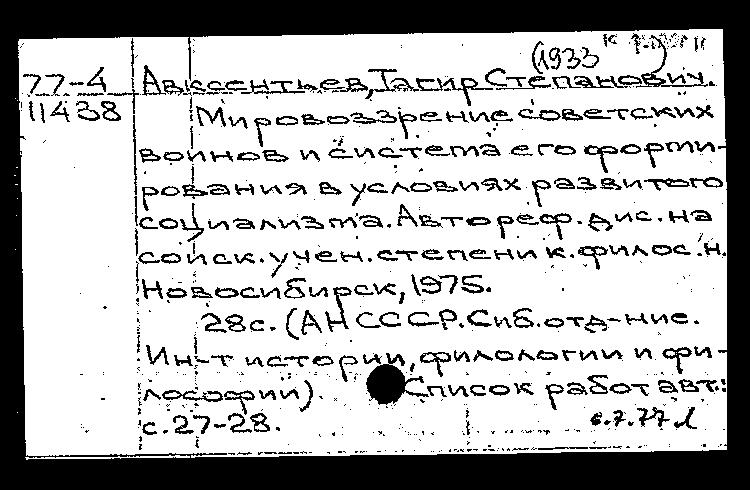 (1933 )
77-4 Авксентьев, Тагир Степанович.
11438 Мировоззрение советских
воинов и система его форми-
рования в условиях развитого
социализма. Автореф. дис. на
соиск. учен. степени к. филос. н.
Новосибирск, 1975.
28с. (АН СССР. Сиб. отд-ние.
Ин-т истории, филологии и фи-
лософии). Список работ авт.:
с. 27-28.